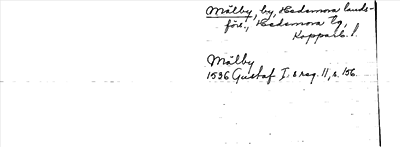 Mälby, by, Hedemora lands-
förs., Hedemora tg,
Kopparb. l.
Mälby
1536 Gustaf I:s reg. 11, s. 156.